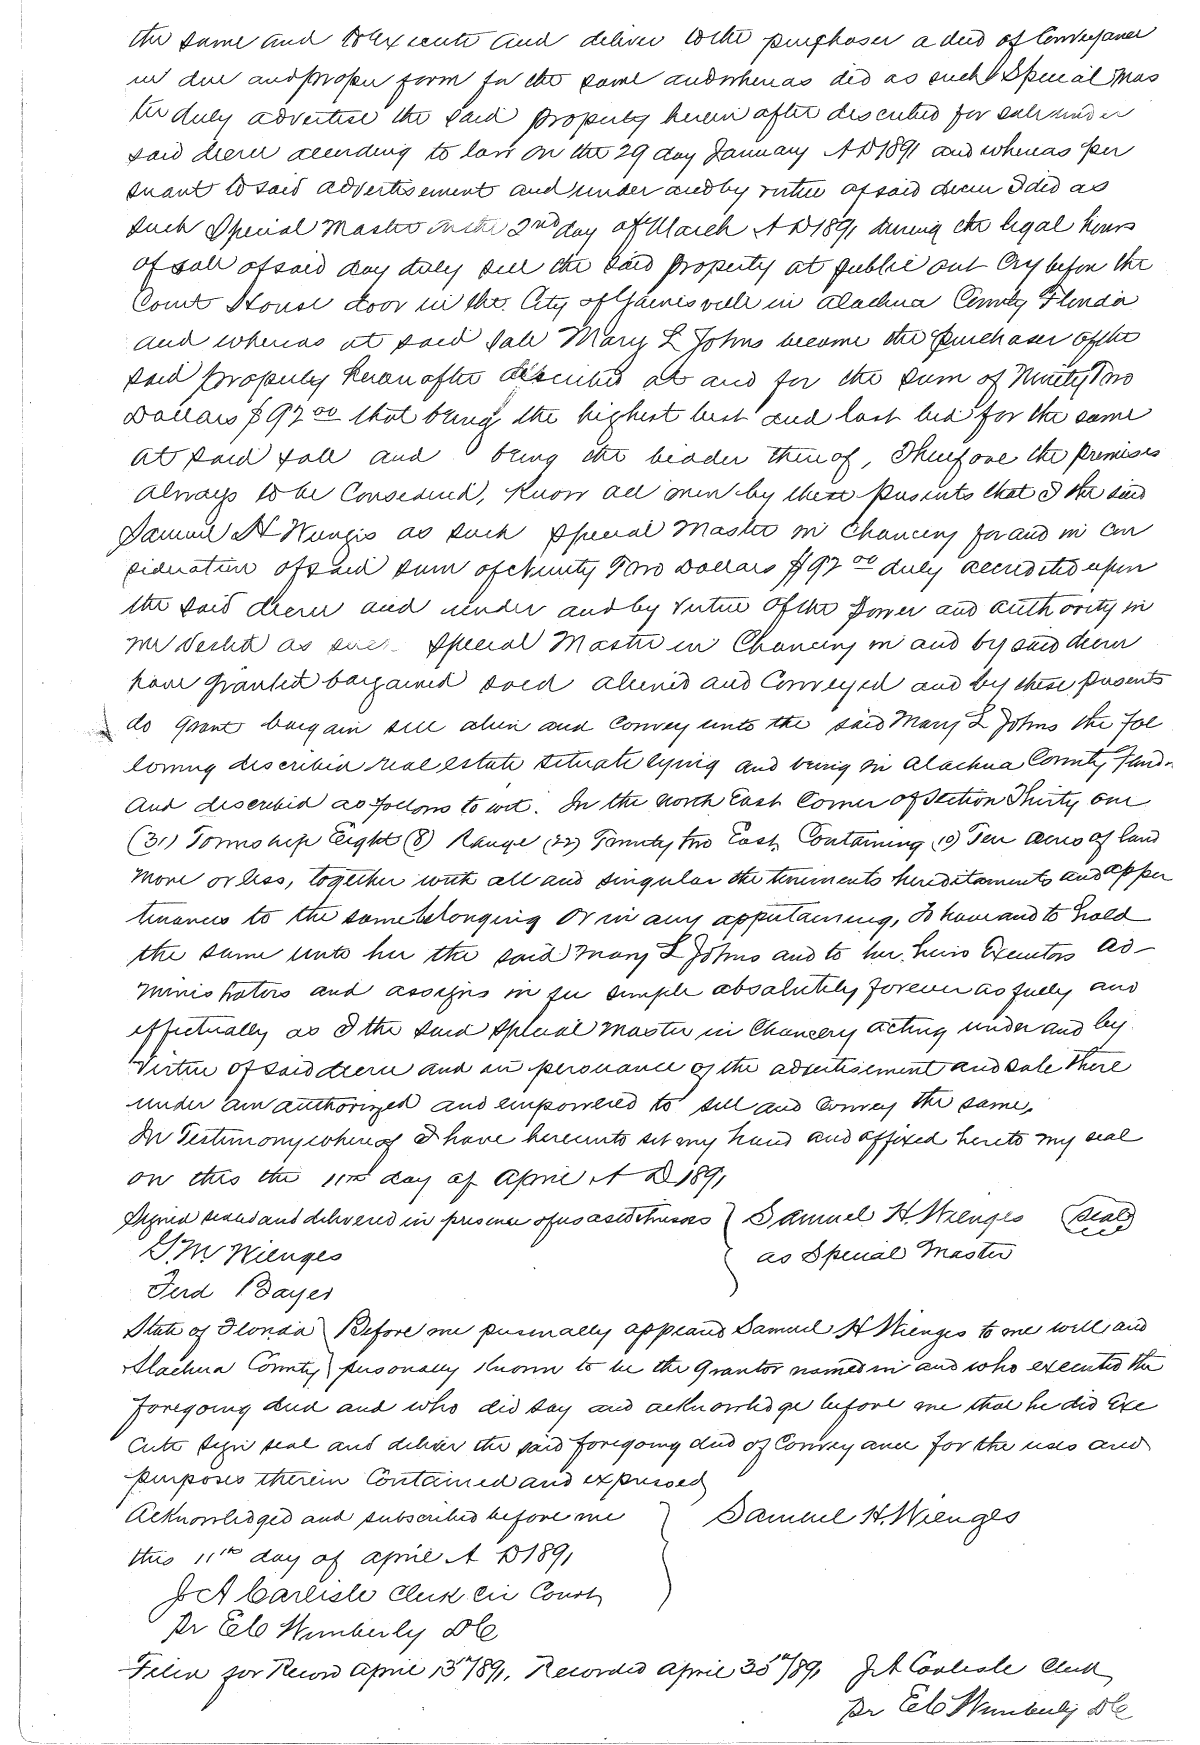 the same and to Execute and deliver to the purchaser a deed of Conveyance
in due and proper form for the same and whereas did as such Special Mas
ter duly advertise the said property herein after described for sale under
said decree according to law on the 29 day January A D 1891 and whereas per
suant to said advertisement and under and by virtue of said decree I did as
such Special Master on the 2nd day of March A D 1891 during the legal hours
of sale of said day duly sell the said property at public out Cry before the
Court House door in the City of Gainesville in Alachua County Florida
and whereas at said sale Mary L Johns became the purchaser of the
said property hereinafter described at and for the sum of Ninety Two
Dollars $92 00 that being the highest best and last bid for the same
at said sale and being the bidder thereof, Therefore the premises
always to be Considered, Know all men by these presents that I the said
Samuel H Wienges as such Special Master in Chancery for and in con
sideration of said sum of Ninety Two Dollars $92 00 duly accredited upon
the said decree and under and by virtue of the power and authority in
me vested as such Special Master in Chancery in and by said decree
have granted bargained sold aliened and Conveyed and by these presents
do grant bargain sell alien and convey unto the said Mary L Johns the fol
lowing described real estate situate lying and being in Alachua County
and described as follows to wit. In the north East Corner of Section Thirty one
(31) Township Eight (8) Range (22) Twenty two East, Containing (10) Ten acres of land
more or less, together with all and singular the tenements hereditaments and apper
tinances to the same belonging or in any appertaining, To have and to hold
the same unto her the said Mary L Johns and to her heirs Executors ad-
ministrators and assigns in fee simple absolutely forever as fully and
effectually as I the said special Master in Chancery acting under and by
virtue of said decree and in persuance of the advertisement and sale there
under am authorized and empowered to sell and convey the same.
In Testimony whereof I have hereunto set my hand and affixed hereto my seal
on this the 11th day of April A D 1891
Signed sealed and delivered in presence of us as witnesses } Samuel H. Wienges (seal)
G. M. Wienges as Special Master
Ferd Bayer
State of Florida } Before me personally appeared Samuel H Wienges to me well and
Alachua County } personally known to be the grantor named in and who executed the
foregoing deed and who did say and acknowledge before me that he did Exe
cute sign seal and deliver the said foregoing deed of Conveyance for the uses and
purposes therein Contained and expressed
Acknowledged and subscribed before me } Samuel H. Wienges
this 11th day of april A D 1891
J A Carlisle Clerk Cir Court
Pr E C Wimberly D C
Filed for Record april 13th/891. Recorded april 30th/891 J A Carlisle Clerk
Pr E C Wimberly D C